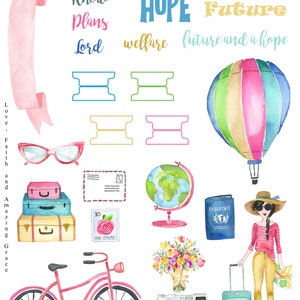 Know
HOPE
Future
Plans
Lord
welfare
future and a hope
Love - Faith and Amazing Grace
30
PASSPORT